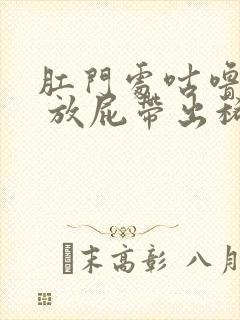 肛門處咕嚕
放屁帶出稀
末高彰 八月